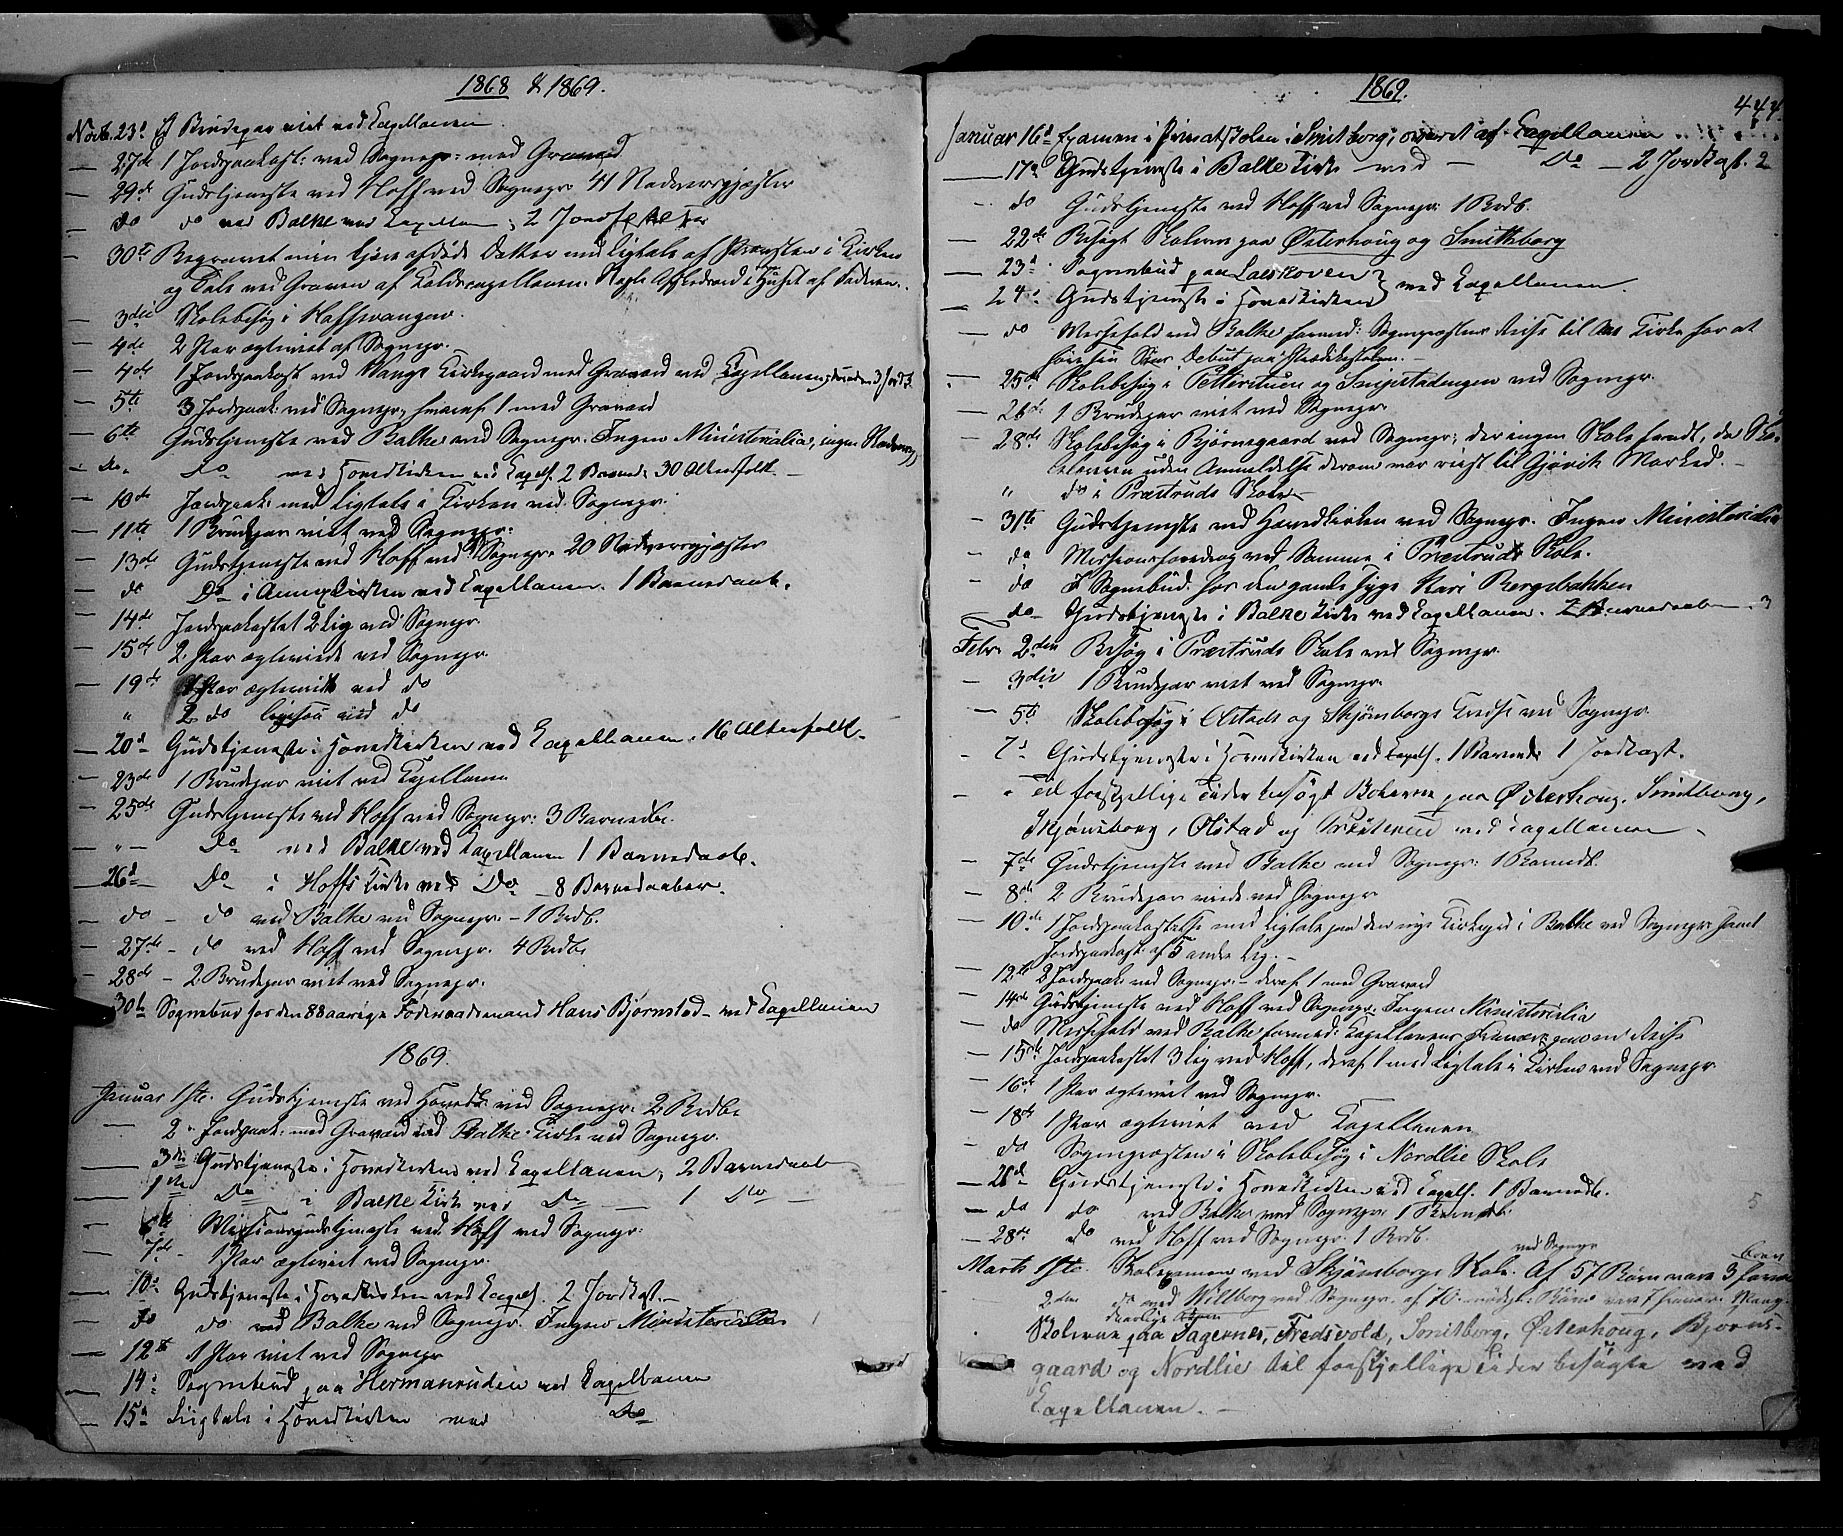 1868 & 1869.
Novb. 23d 1 Brudepar viet ved Capellanen
— 27de 1 Jordpaakast: ved Sognepr: med Gravøl
— 29de Gudstjeneste ved Hoff ved Sognepr. 41 Nadversgjæster
— do do ved Balke ved Capellan; 2
— 30te Begravet min kjære afdøde Datter med Ligtale af Provsten i Kirken
og Tale ved Graven af Capellanen. Afskedsord i Huset af Faderen.
— 3die Skolebesøg i Hoffsvangen.
— 4de 2 Par ægteviet af Sognepr.
— 4de 1 Jordpaakast ved Vangs Kirkegaard med ved Capellanen,
— 5te 3 Jordpaak: ved Sognepr, hvoraf 1 med
— 6te Gudstjeneste ved Balke ved Sognepr. Ingen Ministerialia, ingen
— do. do ved Hovedkirken ved Capell. 2 Barned. 30 Altersfolk. —
— 10de Jordpaak: med Ligtale i Kirken ved Sognepr.
— 11te 1 Brudepar viet ved Sognepr:
— 13de Gudstjeneste ved Hoff ved Sognepr. 20 Nadversgjæster
— do Do i Annexkirken ved Capellanen. 1 Barnedaab.
— 14de Jordpaakastet 2 Lig ved Sognepr
— 15de 2 Par ægteviede ved Sognepr.
— 19de Par ægteviet ved do
" 2 do ligesaa ved do
— 20d Gudstjeneste i Hovedkirken ved Capellanen. 16 Altersfolk.
— 23de 1 Brudepar viet ved Capellanen
— 25de Gudstjeneste ved Hoff ved Sognepr: 3 Barnedb.
— " — Do ved Balke ved Capellanen 1 Barnedaab.
— 26d — Do i Hoffs Kirke ved Do — 8 Barnedaaber.
— do — do ved Balke ved Sognepr. — 1 Brdb.
— 27de — do ved Hoff ved Sognepr. 4 Brdb.
— 28de — 2 Brudepar viet ved Sognepr.
30te Sognebud hos den 88aarige Føderaadsmand Hans Bjørnstad — ved Capellanen
1869.
Januar 1ste. Gudstjeneste ved Hovedk: ved Sognepr: 2 Brdb.
— 2. Jordpaak: med ved Balke Kirke ved Sognepr.
— 3die Gudstjeneste i Hovedkirken ved Capellanen, 2 Barnedaab
— 1ste Do i Balke Kirke ved Do — 1 Do —
— 6te Missionsgudstjeneste ved Hoff ved Sognepr:
— 7de — 1 Par ægteviet ved Sognepr.
— 10d Gudstjeneste i Hovedkirken ved Capell. 2 Jordkast. —
— do do ved Balke ved Sognepr. Ingen Ministerialia
— 12te 1 Par viet ved Sognepr
— 14d Sognebud paa Hermanruden ved Capellanen
— 15d Liigtale i Hovedkirken ved Do
1869.
444
Januar 16d Examen i Privatskolen i Smitborg; overet af Capellanen
— 17d Gudstjeneste i Balke Kirke — ved — Do — 2 Jordkast. 2
— do Gudstjeneste ved Hoff ved Sognepr: 1 Brdb.
— 22de Besøgt Skolerne paa Østerhoug og Smithborg
— 23d Sognebud paa } med Capellanen.
— 24d Gudstjeneste i Hovedkirken
— do Messefald ved Balke formed: Sognepræstens Reise til Kirke for at
høre sin Søns Debut paa Prædikestolen. —
— 25de Skolebesøg i Petterstuen og Smestadengen ved Sognepr.
— 26de 1 Brudepar viet ved Sognepr.
— 28de Skolebesøg i Bjørnsgaard ved Sognepr; der ingen Skole fandt, da
uden Anmeldelse derom var reist til Gjøvik Marked. —
" do i Præstruds Skole —
— 31te Gudstjeneste ved Hovedkirken ved Sognepr. Ingen Ministerialia
— do Missionsforedrag ved Samme i Præstruds Skole.
— do Sognebud hos den gamle syge Kari Bergsbakken
— do Gudstjeneste i Balke Kirke ved Capellanen. Barnedaaben. 3
Febr. 2den Besøg i Præstruds Skole ved Sognepr.
— 3die 1 Brudepar viet ved Sognepr.
— 5te Skolebesøg i Ølstads og Skjønsborgs Kreise ved Sognepr.
— 7d Gudstjeneste i Hovedkirken ved Capell. 1 Barned. 1 Jordkast.
— Til forskjellige Tider besøgt Skolerne paa Østerhoug, Smitborg,
Skjønsborg, Ølstad og ved Capellanen —
— 7de Gudstjeneste ved Balke ved Sognepr: 1 Barnedb.
— 8de 2 Brudepar viede ved Sognepr
— 10de 1 Jordpaakastelse med Ligtale paa den nye Kirkegd i Balke ved Sognepr samt
Jordpaakast: af 5 andre Lig. —
— 12te 2 Jordpaak: ved Sognepr. — deraf 1 med
— 14de Gudstjeneste ved Hoff ved Sognepr. Ingen Ministerialia
— do Messefald ved Balke formed: Capellanens Fravær paa en Reise
— 15de Jordpaakastet 3 Lig ved Hoff, deraf 1 med Ligtale i Kirken ved Sognepr
— 16de 1 Par ægteviet ved Sognepr.
— 18de 1 Par ægteviet ved Capellanen
— do Sognepræsten i Skolebesøg i Nordlie Skole
— 21d Gudstjeneste i Hovedkirken ved Capell. 1 Barnedb.
— do do ved Balke ved Sognepr. 1 Barndb.
— 28de do ved Hoff ved Sognepr. 1 Brdb.
ved Sognepr
Marts 1ste. Skolexamen ved Skjønsborgs Skole. Af 57 Børn vare 3 fravær
2den do ved Willberg ved Sognepr. af 70 Børn var 7 fravær.
Skolerne paa Sagernes, Fredsvold, Smitborg, Østerhoug, Bjørns-
gaard og Nordlie til forskjellige Tider besøgte ved
Capellanen. —
5